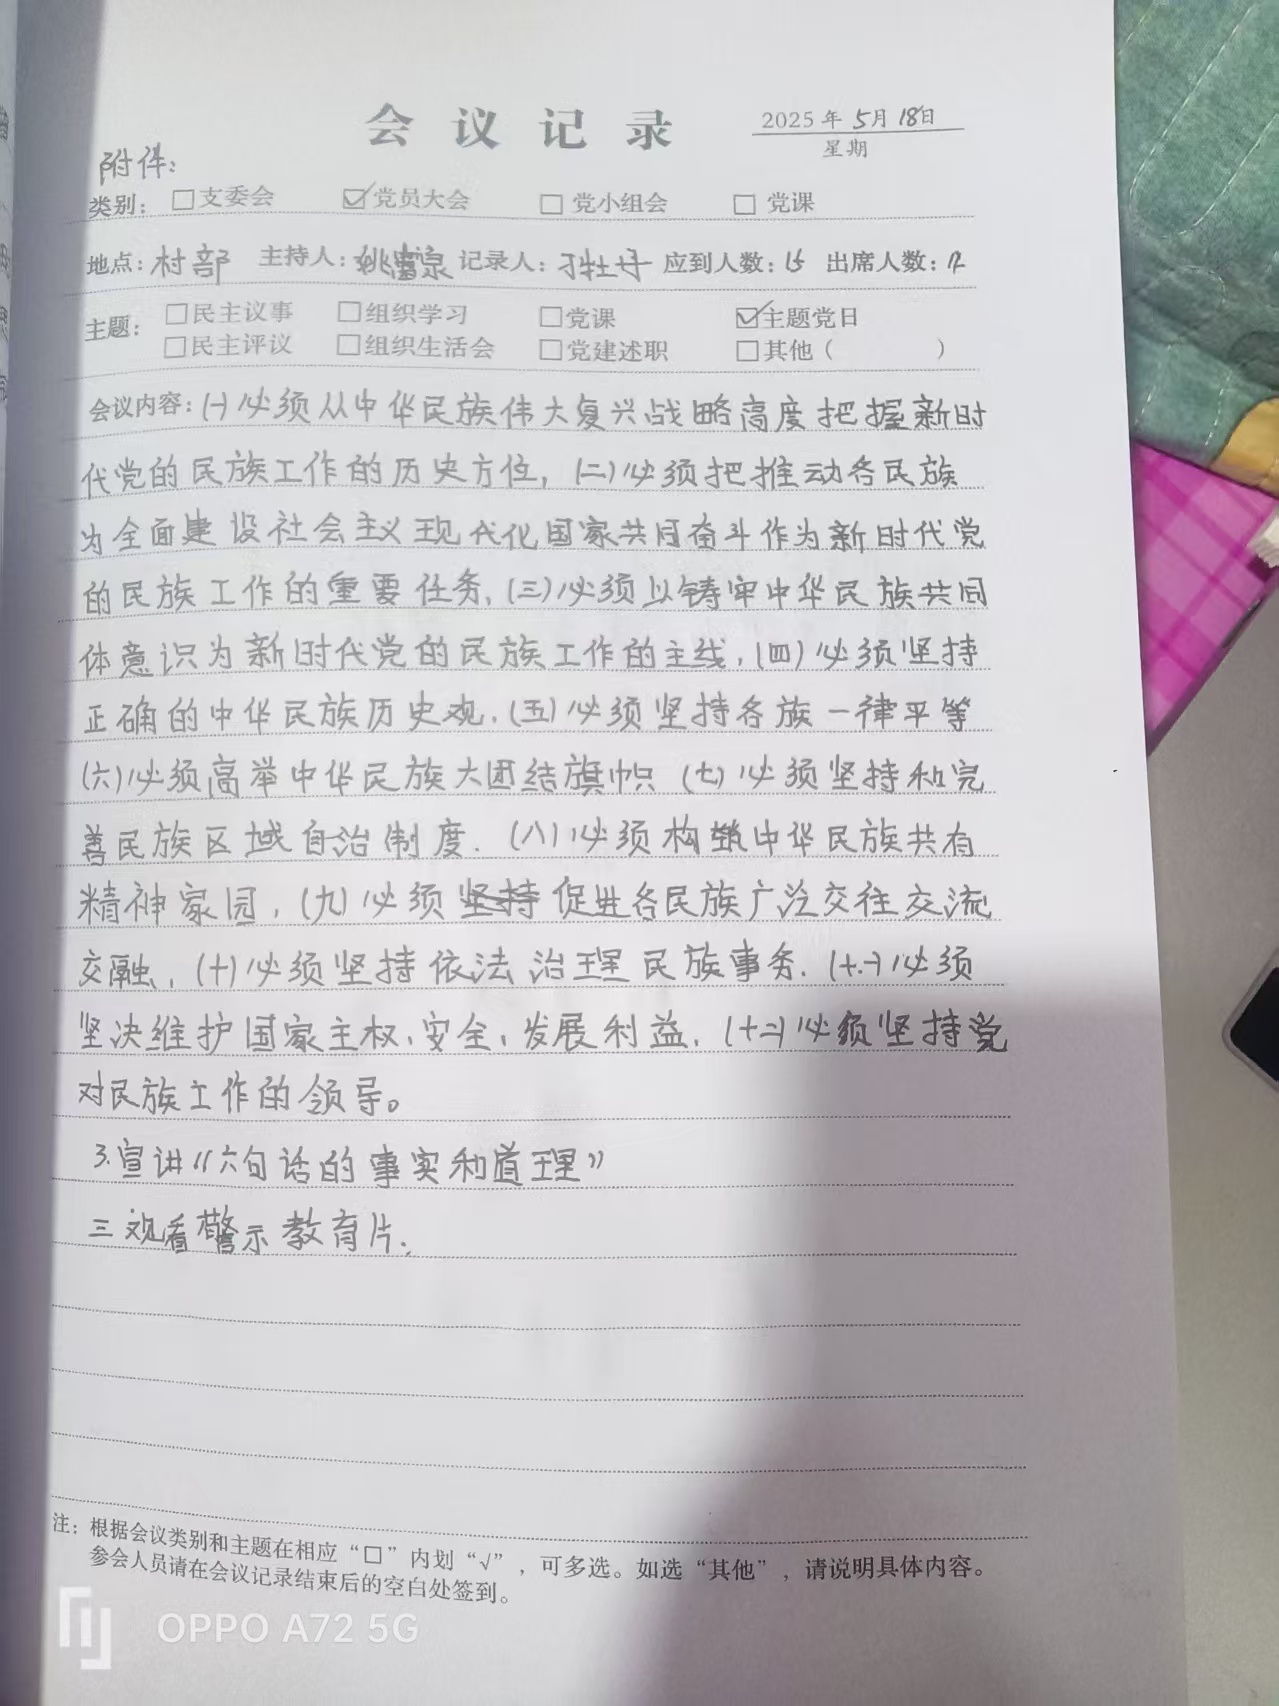 会议记录
2025年5月18日
星期
附件:
类别: □支委会 ☑党员大会 □党小组会 □党课
地点:村部 主持人:姚 泉 记录人: 牡丹 应到人数:15 出席人数:12
主题: □民主议事 □组织学习 □党课 ☑主题党日
□民主评议 □组织生活会 □党建述职 □其他( )
会议内容:(一)必须从中华民族伟大复兴战略高度把握新时
代党的民族工作的历史方位,(二)必须把推动各民族
为全面建设社会主义现代化国家共同奋斗作为新时代党
的民族工作的重要任务,(三)必须以铸牢中华民族共同
体意识为新时代党的民族工作的主线,(四)必须坚持
正确的中华民族历史观,(五)必须坚持各族一律平等
(六)必须高举中华民族大团结旗帜 (七)必须坚持和完
善民族区域自治制度.(八)必须构筑中华民族共有
精神家园,(九)必须坚持促进各民族广泛交往交流
交融,(十)必须坚持依法治理民族事务.(十一)必须
坚决维护国家主权、安全、发展利益,(十二)必须坚持党
对民族工作的领导。
3.宣讲“六句话的事实和道理”
三 观看警示教育片.
注: 根据会议类别和主题在相应“□”内划“√”,可多选。如选“其他”,请说明具体内容。
参会人员请在会议记录结束后的空白处签到。
OPPO A72 5G